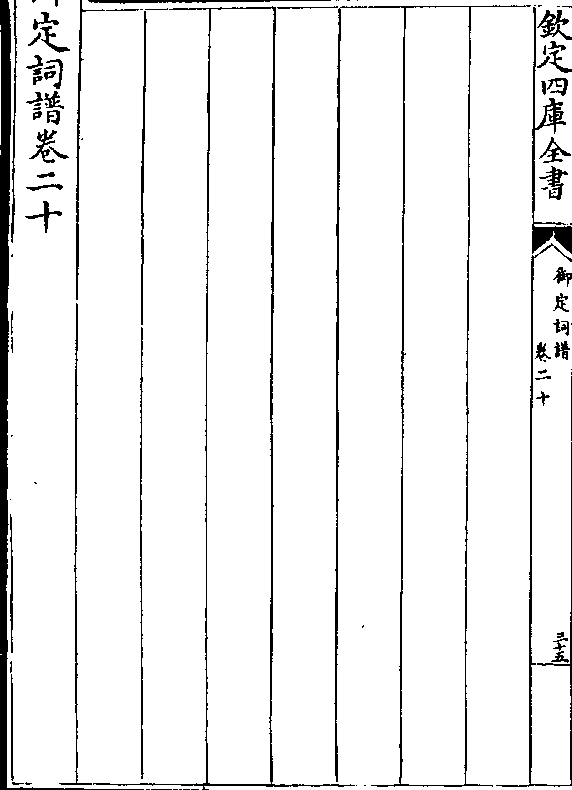 欽定四庫全書
御定詞譜
卷二十
三十五
定詞譜卷二十